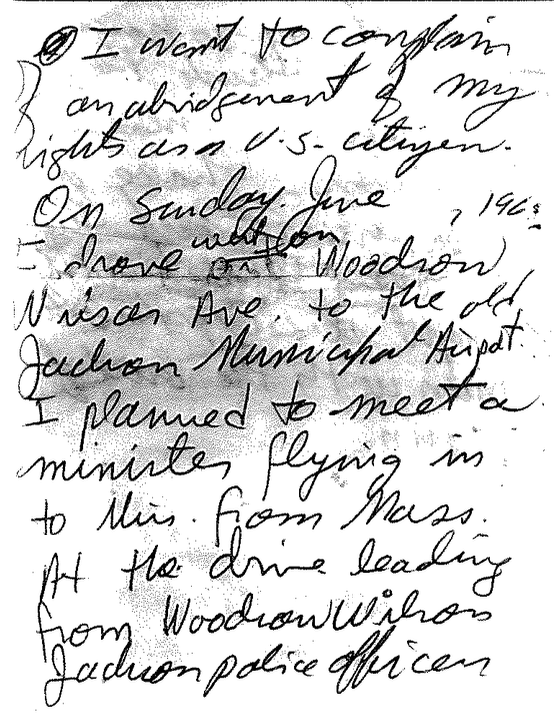 I want to complain
an abridgement of my
rights as a U.S. citizen.
On Sunday. June , 196
I drove west on Woodrow
Wilson Ave. to the old
Jackson Municipal Airport.
I planned to meet a
minister flying in
to Miss. from Mass.
At the drive leading
from Woodrow Wilson
Jackson police officers